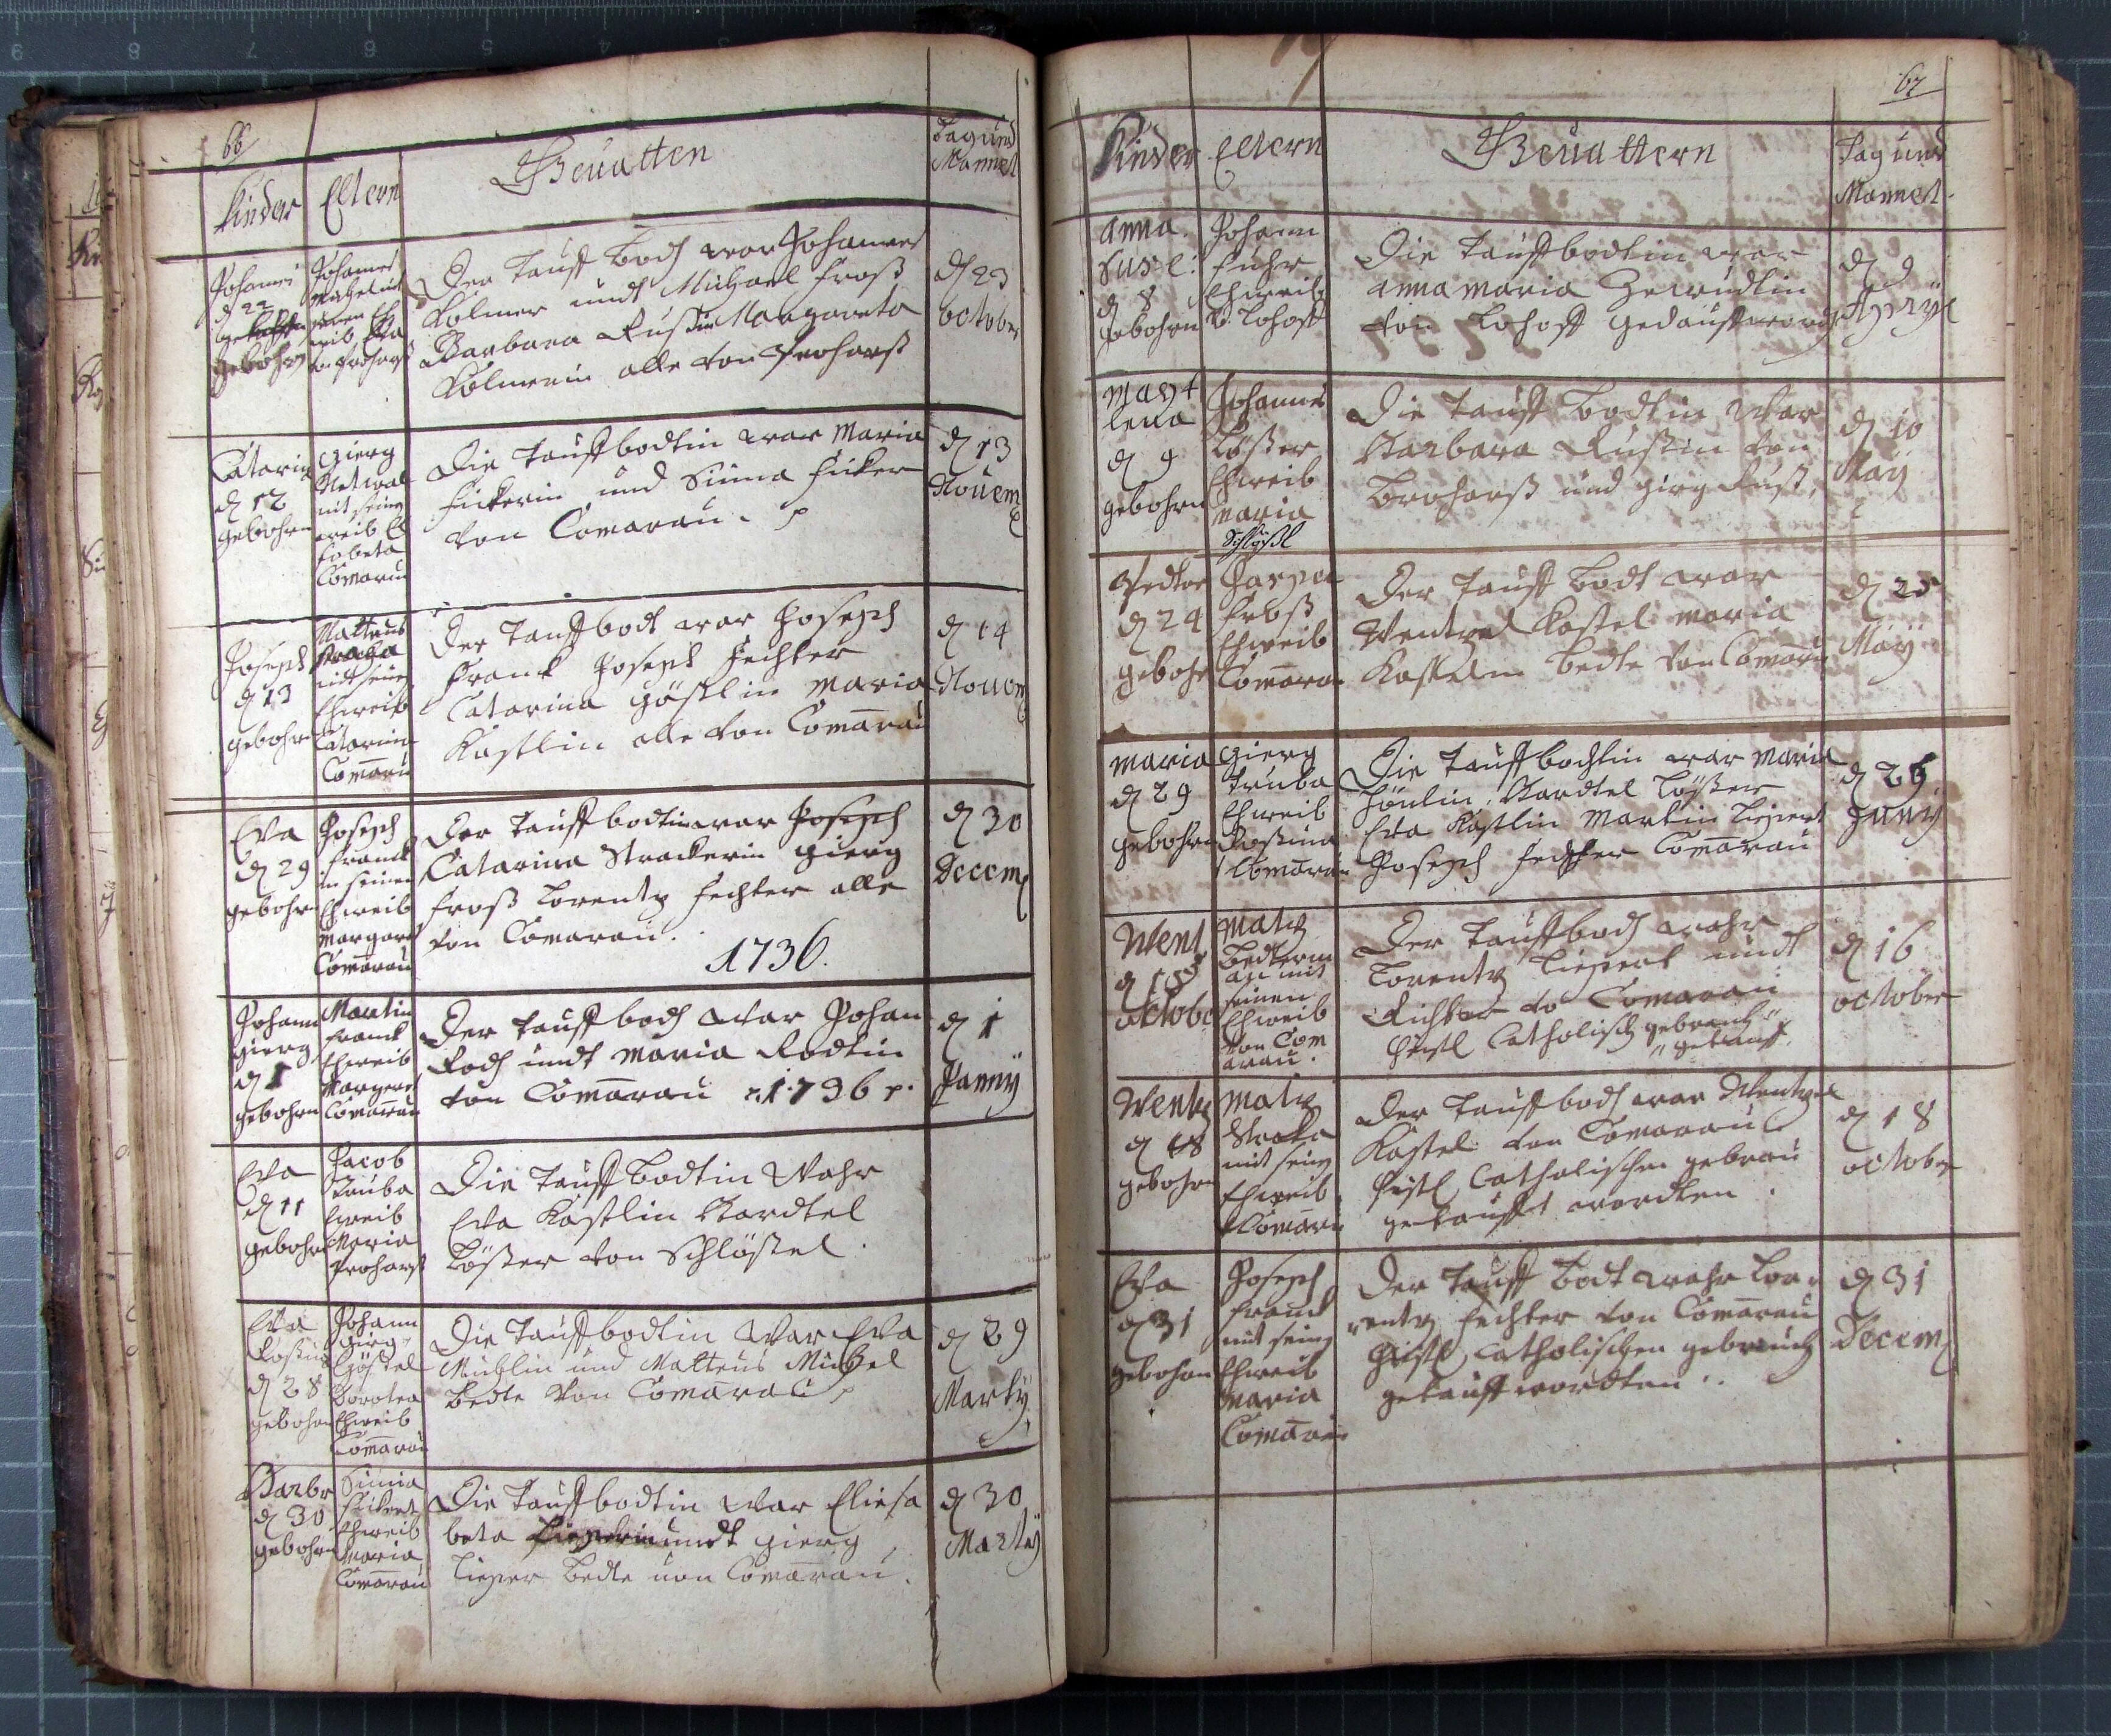 66
Kinder Eltern Gevatten Tag und Mannet
Johannes
d 22
gebohrn
Johannes
seinen Eh
weib Eva
Der Tauff Bodt war Johannes
Kolmer undt Michael Froß
Barbara Rustin Margareta
Kolmerin alle von Proharß
d 23
october
Catarin
d 12
gebohrn
gierg
mit seinen
weib El
sabeta
Comarau
Die Tauffbodtin war Maria
Fickerin und Sima Ficker
von Comarau. p
d 13
Nouem
Joseph
d 13
gebohrn
Matteus
Straka
mit seinen
Ehweib
Catarina
Comarau
Der Tauffbodt war Joseph
Franck Joseph Fechter
Catarina göstlin Maria
Kastlin alle von Comarau
d 14
Nouem
Eva
d 29
gebohrn
Joseph
Franck
in seinen
Ehweib
Margaret
Comarau
Der Tauffbodtin war Joseph
Catarina Strackerin gierg
Froß Lorentz Fechter alle
von Comarau.
1736.
d 30
Decem
Johann
gierg
d 1
gebohrn
Martin
Franck
Ehweib
Margaret
Comarau
Der Tauffbodt war Johan
Rodt undt Maria Rodtin
von Comarau 1736 p.
d 1
Janny
Eva
d 11
gebohrn
Jacob
Truba
Eweib
Maria
Proharß
Die Tauffbodtin Wahr
Eva Kastlin Bardtel
Lößer von Schlößel.
Eva
Rosina
d 28
gebohrn
Johann
girg
göstel
Dorotea
Ehweib
Comarau
Die Tauffbodtin War Eva
Michlin und Matteus Michel
bedte von Comarau p
d 29
Marty
Barbr
d 30
gebohrn
Simia
Fickert
Ehweib
Maria
Comarau
Die Tauffbodtin War Eliesa
beta undt gierg
Lieper bedte uon Comarau.
d 30
Marty
67
Kinder Eltern Gevattern Tag und
Mannet.
Anna
Susl:
d 8
gebohrn
Johann
Fuhr
Ehweib
v. Lohost
Die Tauffbodtin war
anna maria
von Lohost gedaufft word
d 9
Apryl
Mag
lena
d 9
gebohrn
Johannes
Lößer
Ehweib
Maria
Schlößl
Die Tauff bodtin War
Barbara Rustin von
Broharß und girg Rust.
d 10
May
d 24
gebohr
Caspar
Froß
Ehweib
Comarau
Der Tauff bodt war
Wentzel Kastel maria
Kastelin bedte von Comarau
d 25
May
maria
d 29
gebohrn
gierg
Truba
Ehweib
Rosina
Comarau
Die Tauff bodtin war Maria
Bardtel Lößer
Eva Kastlin Martin Liepert
Joseph Fechter Comarau
d 29
Juny
Went
d 15
october
Matz
Bedterm
an mit
seinen
Ehweib
von Com
arau.
Der Tauffbodt wahr
Lorentz Liepert undt
Richter vo Comarau
Christl Catholisch gebrauch
getauft.
d 16
october
Wentz
d 18
gebohrn
Matz
Straka
mit seinen
Ehweib
Comarau
Der Tauffbodt war Wentzel
Kastel von Comarau
Christl Catholischen gebrau
getaufft wordten.
d 18
october
Eva
d 31
gebohrn
Joseph
Franck
mit seinen
Ehweib
Maria
Comarau
Der Tauff bodt wahr Lor
entz Fechter von Comarau
Christl Catholischen gebrauch
getaufft wordten.
d 31
Decem